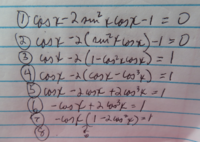 ① cosx - 2 sin²x cosx - 1 = 0
② cosx - 2(sin²x cosx) - 1 = 0
③ cosx - 2(1 - cos²x cosx) = 1
④ cosx - 2(cosx - cos³x) = 1
⑤ cosx - 2cosx + 2cos³x = 1
⑥ -cosx + 2cos³x = 1
⑦ -cosx (1 - 2cos²x) = 1
⑧